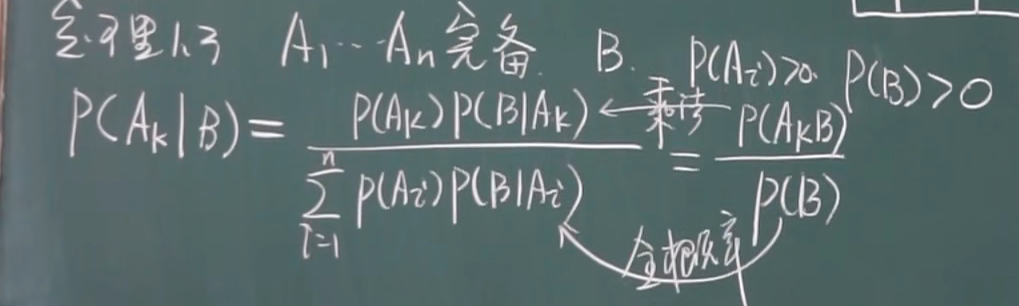 定理1.3 A₁…Aₙ完备. B. P(Aᵢ)>0. P(B)>0
P(Aₖ|B) = \frac{P(Aₖ)P(B|Aₖ)}{\sum_{i=1}^{n} P(Aᵢ)P(B|Aᵢ)} = \frac{P(AₖB)}{P(B)}
乘法
全概率